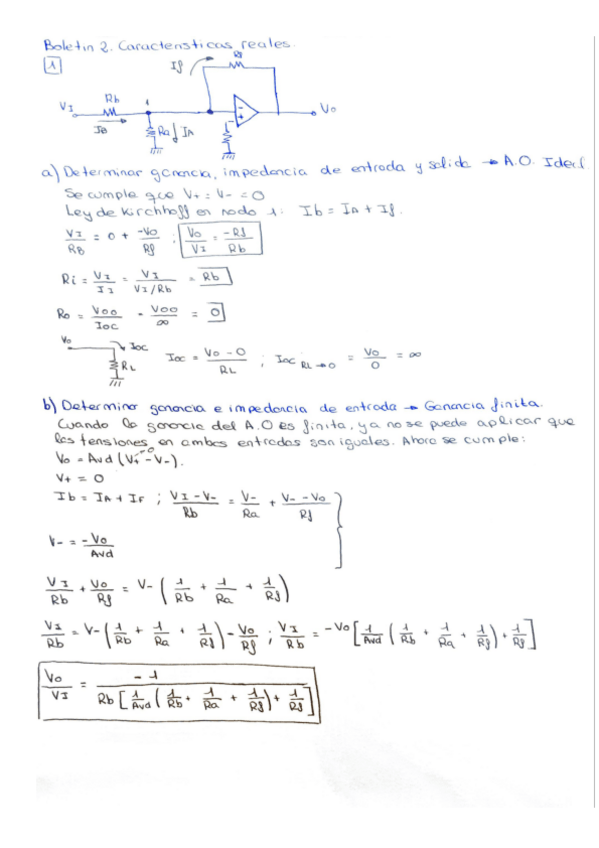 Boletín 2. Características reales.
1
If
Rf
Rb
VI
1
Vo
IB
Ra
IA
a) Determinar ganancia, impedancia de entrada y salida → A.O. Ideal
Se cumple que V+ = V- = 0
Ley de Kirchhoff en nodo 1: Ib = IA + If.
VI/RB = 0 + -Vo/Rf ; Vo/VI = -Rf/Rb
Ri = VI/II = VI/(VI/Rb) = Rb
Ro = Voo/Ioc = Voo/∞ = 0
Vo
Ioc
RL
Ioc = (Vo - 0)/RL ; Ioc RL→0 = Vo/0 = ∞
b) Determinar ganancia e impedancia de entrada → Ganancia finita.
Cuando la ganancia del A.O es finita, ya no se puede aplicar que
las tensiones en ambas entradas son iguales. Ahora se cumple:
Vo = Avd (V+ - V-).
V+ = 0
Ib = IA + IF ; (VI - V-)/Rb = V-/Ra + (V- - Vo)/Rf
V- = -Vo/Avd
VI/Rb + Vo/Rf = V- (1/Rb + 1/Ra + 1/Rf)
VI/Rb = V- (1/Rb + 1/Ra + 1/Rf) - Vo/Rf ; VI/Rb = -Vo [1/Avd (1/Rb + 1/Ra + 1/Rf) + 1/Rf]
Vo/VI = -1/(Rb [1/Avd (1/Rb + 1/Ra + 1/Rf) + 1/Rf])